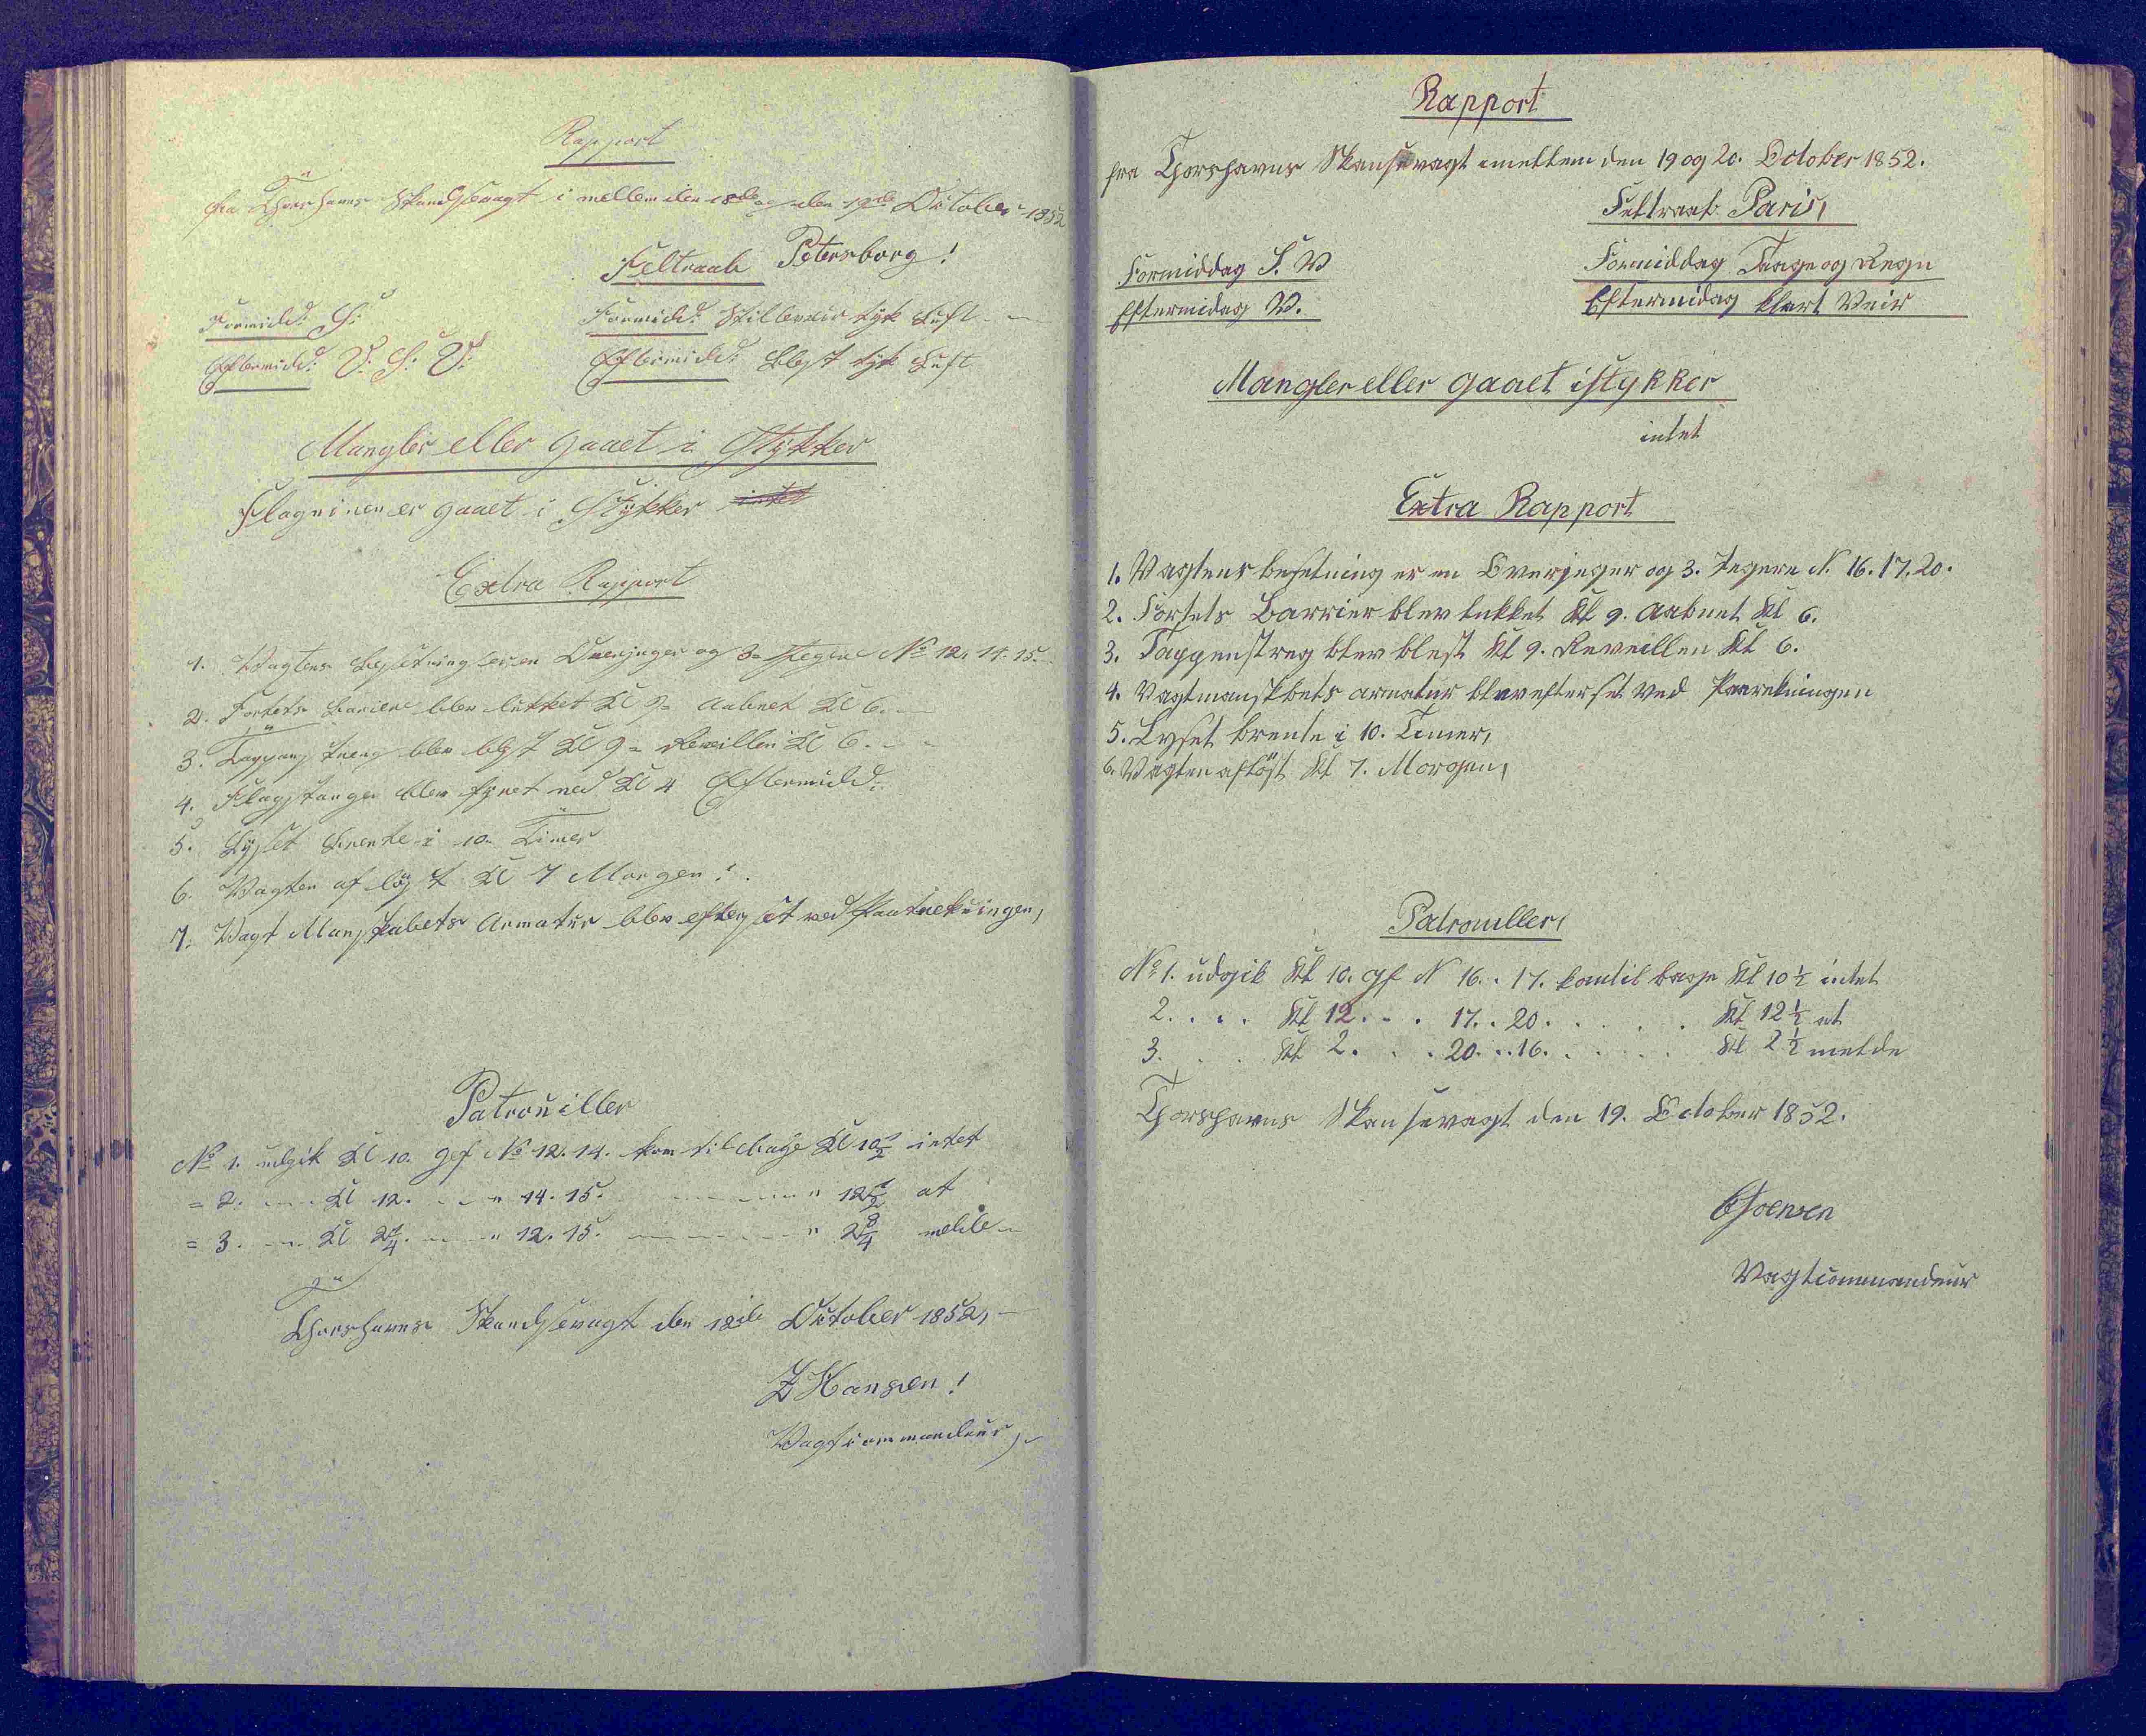 Rapport
fra Thorshavns Skandsevagt i mellem den 18de og den 19de October 1852
Feltraab Petersborg!
Formidd: S: Formidd: Stilleveir tyk Luft
Eftermidd: V: S: V: Eftermidd: blest tyk Luft
Mangler eller gaaet i Stykker
Flaglinen er gaaet i Stykker intet
Extra Rapport
1. Vagtens besetning er en Overjeger og 3 Jegere No 12. 14. 15.
2. Fortets Bariere blev lukket Kl 9 Aabnet Kl 6.
3. Tappenstreg blev blest Kl 9 Reveillen Kl 6.
4. Flagstangen blev firet ned Kl 4 Eftermidd:
5. Lyset brente i 10 Timer
6. Vagten afløst Kl 7 Morgen!
7. Vagt Manskabets Armatur blev efterset ved Paatrekningen,
Patrouiller
No 1. udgik Kl 10. Gef No 12. 14. kom tilbage Kl 10½ intet
= 2. Kl 12. " 14. 15. " 12½ at
= 3. Kl 2¼ " 12. 15. " 2¾ melde
Thorshavns Skandsevagt den 18de October 1852,
Z Hansen!
Vagtcommandeur,
Rapport
fra Thorshavns Skansevagt imellem den 19 og 20. October 1852.
Feltraab: Paris,
Formiddag S. V Formiddag Taage og Regn
Eftermidag V. Eftermidag klart Veir
Mangler eller gaaet istykker
intet
Extra Rapport
1. Vagtens besetning er en Overjeger og 3. Jegere N. 16. 17. 20.
2. Fortets Barrier blev lukket Kl 9. Aabnet Kl 6.
3. Tappenstreg blev blest Kl 9. Reveillen Kl 6.
4. Vagtmanskbets armatur blev efterset ved Paarekningen
5. Lyset brente i 10. Timer,
6. Vagten afløst Kl 7. Morgen,
Patrouiller,
No 1. udgik Kl 10. Gf N 16. . 17. kom til bage Kl 10½ intet
2. . . . Kl 12. . . 17. . 20. . . . . . Kl 12½ at
3. . . Kl 2. . . . 20. . . 16. . . . . . Kl 2½ melde
Thorshavns Skansevagt den 19. October 1852.
Vagtcommandeur